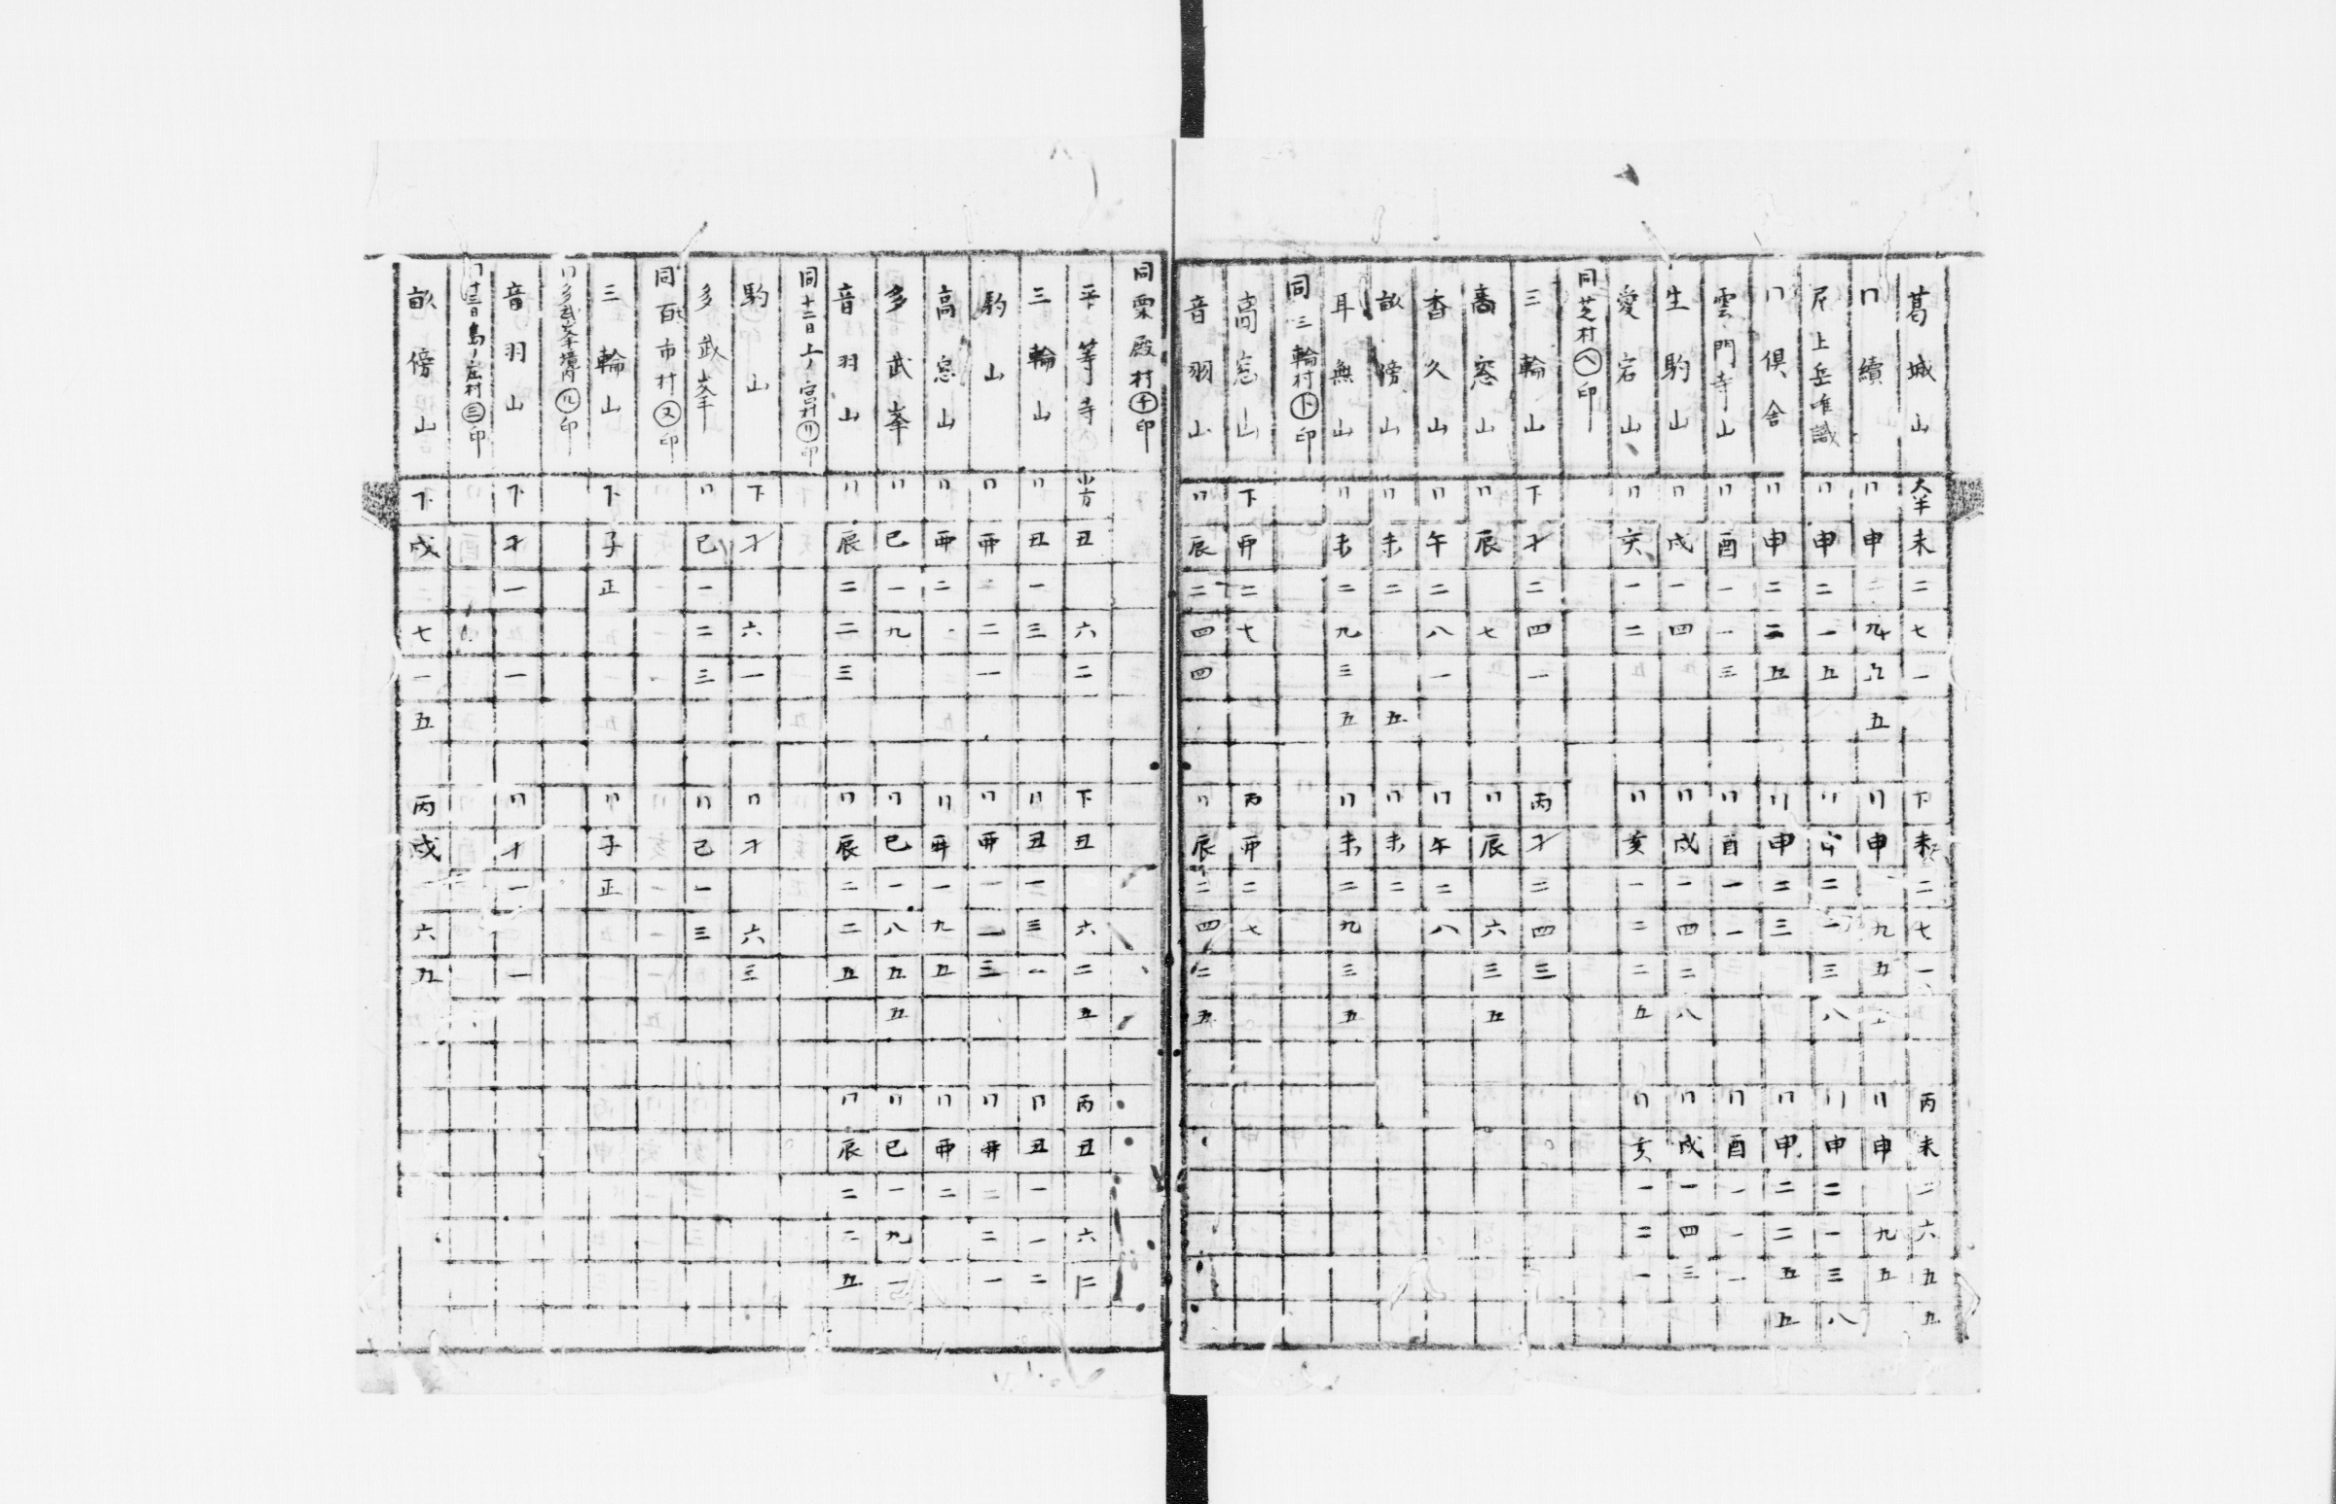 葛城山 大半 未 二 七 一 下 未 二 七 一 丙 未 二 六 九 五
〃續 〃 申 二 九 五 〃 申 九 五 〃 申 九 五
尼上岳唯識 〃 申 二 一 五 〃 申 二 一 三 八 〃 申 二 一 三 八
〃倶舍 〃 申 二 二 五 〃 申 二 三 〃 申 二 二 五 五
雲門寺山 〃 酉 一 一 三 〃 酉 一 一 〃 酉 一 一 一
生駒山 〃 戌 一 四 〃 戌 一 四 二 八 〃 戌 一 四 三
愛宕山 〃 亥 一 二 〃 亥 一 二 二 五 〃 亥 一 二 一
同芝村㋬印
三輪山 下 才 二 四 一 丙 才 二 四 三
高窓山 〃 辰 七 〃 辰 六 三 五
香久山 〃 午 二 八 一 〃 午 二 八
畝傍山 〃 未 二 五 〃 未 二
耳無山 〃 未 二 九 三 五 〃 未 二 九 三 五
同三輪村㋣印
高窓山 下 丣 二 七 丙 丣 二 七
音羽山 〃 辰 二 四 四 〃 辰 二 四 二 五
同粟殿村㋠印
平等寺 小方 丑 六 二 下 丑 六 二 五 丙 丑 六 二
三輪山 〃 丑 一 三 〃 丑 一 三 一 〃 丑 一 一 二
駒山 〃 丣 二 二 一 〃 丣 一 一 三 〃 丣 二 二 一
高窓山 〃 丣 二 〃 丣 一 九 五 〃 丣 二
多武峯 〃 巳 一 九 〃 巳 一 八 五 五 〃 巳 一 九 一
音羽山 〃 辰 二 二 三 〃 辰 二 二 五 〃 辰 二 二 五
同十二日上ノ宮村㋷印
駒山 下 才 六 一 〃 才 六 三
多武峯 〃 巳 一 二 三 〃 巳 一 三
同百市村㋦印
三輪山 下 子 正 〃 子 正
〃多武峯境内㋸印
音羽山 下 才 一 一 〃 才 一 一
〃十三日島ノ庄村㊂印
畝傍山 下 戌 二 七 一 五 丙 戌 一 六 九